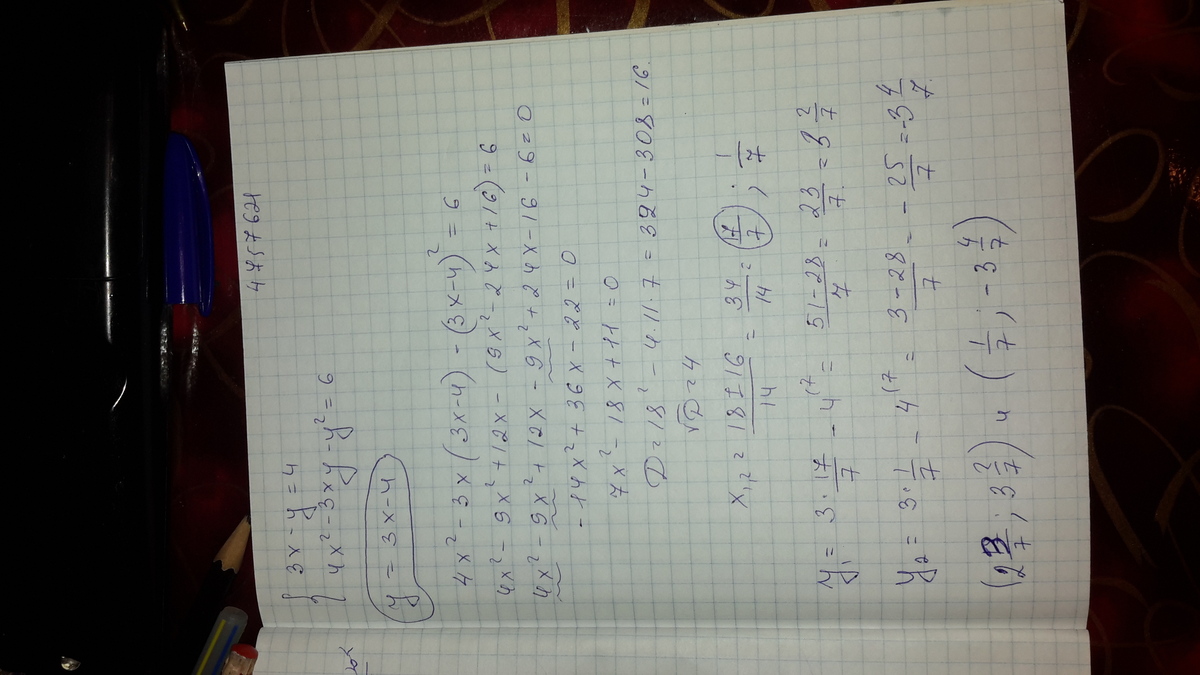 4757621
{ 3x - y = 4
4x² - 3xy - y² = 6
y = 3x - 4
4x² - 3x(3x-4) - (3x-4)² = 6
4x² - 9x² + 12x - (9x² - 24x + 16) = 6
4x² - 9x² + 12x - 9x² + 24x - 16 - 6 = 0
-14x² + 36x - 22 = 0
7x² - 18x + 11 = 0
D = 18² - 4·11·7 = 324 - 308 = 16.
√D = 4
x₁,₂ = (18 ± 16)/14 = 34/14 = 17/7 ; 1/7
y₁ = 3 · 17/7 - 4⁽⁷ = (51-28)/7 = 23/7 = 3 2/7
y₂ = 3 · 1/7 - 4⁽⁷ = (3-28)/7 = -25/7 = -3 4/7.
(2 3/7 ; 3 2/7) и (1/7 ; -3 4/7)